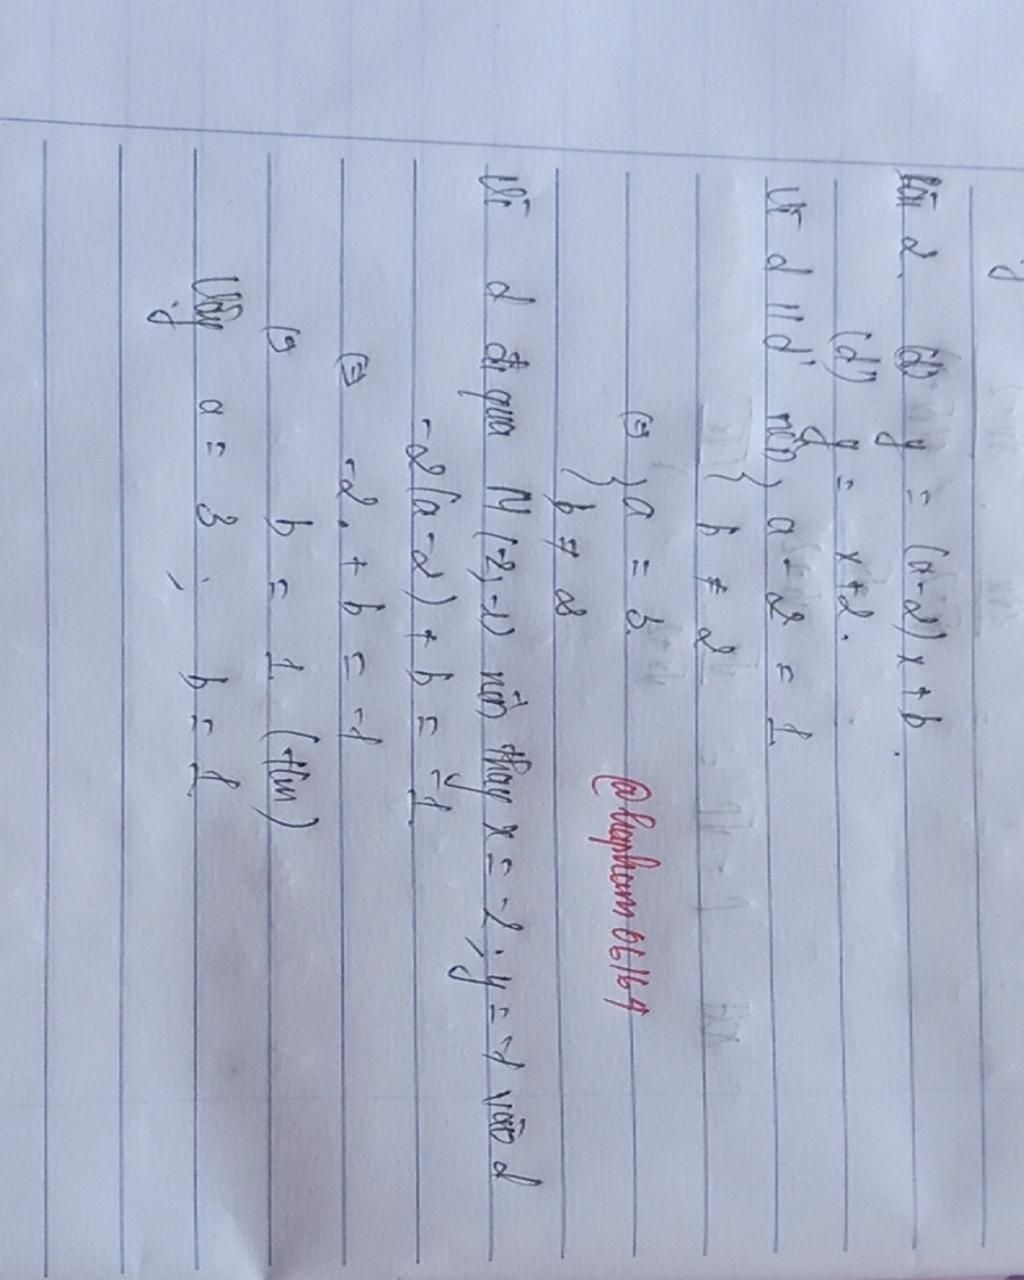 Bài 2. (d) y = (a-2)x + b.
(d') y = x+2.
Vì d // d' nên { a - 2 = 1
{ b ≠ 2
(=) { a = 3.
{ b ≠ 2
@hapham06164
Vì d đi qua M (-2;-1) nên thay x = -2; y = -1 vào d
-2(a-2) + b = -1.
(=) -2. + b = -1
b = 1 (t/m)
Vậy a = 3; b = 1